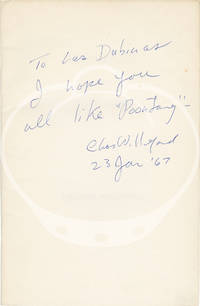 To Las Dubinas
I hope you
all like "Poontang"-
Chas Willeford
23 Jan '67